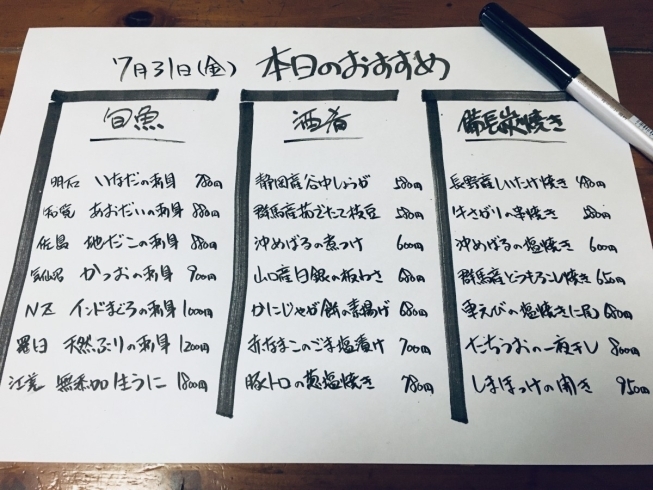 7月31日(金) 本日のおすすめ
旬魚
明石 いなだの刺身 780円
和歌 あおだいの刺身 880円
佐島 地だこの刺身 880円
気仙沼 かつおの刺身 900円
NZ インドまぐろの刺身 1000円
羅臼 天然ぶりの刺身 1200円
無添加生うに 1800円
酒肴
静岡産谷中しょうが 580円
群馬産茹でたて枝豆 580円
沖めばるの煮つけ 600円
山口産白銀の板わさ 680円
かにじゃが餅の素揚げ 680円
赤なまこのごま塩漬け 700円
豚トロの葱塩焼き 780円
備長炭焼き
長野産しいたけ焼き 480円
牛さがりの串焼き 580円
沖めばるの塩焼き 600円
群馬産とうもろこし焼き 650円
えびの塩焼き 二尾 680円
たちうおの一夜干し 800円
しまほっけの開き 950円